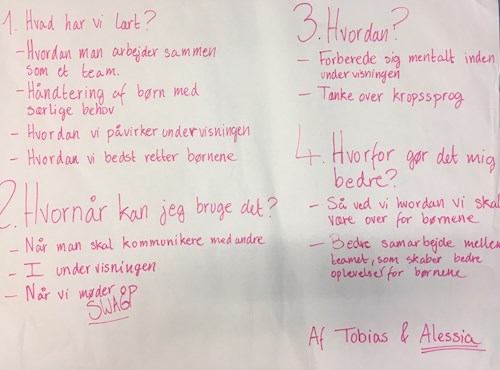 1. Hvad har vi lært?
- Hvordan man arbejder sammen
som et team.
- Håndtering af børn med
særlige behov
- Hvordan vi påvirker undervisningen
- Hvordan vi bedst retter børnene
2. Hvornår kan jeg bruge det?
- Når man skal kommunikere med andre
- I undervisningen
- Når vi møder op
SWAG
3. Hvordan?
- Forberede sig mentalt inden
undervisningen
- Tanke over kropssprog
4. Hvorfor gør det mig
bedre?
- Så ved vi hvordan vi skal
være over for børnene
- Bedre samarbejde mellem
teamet, som skaber bedre
oplevelser for børnene
Af Tobias & Alessia